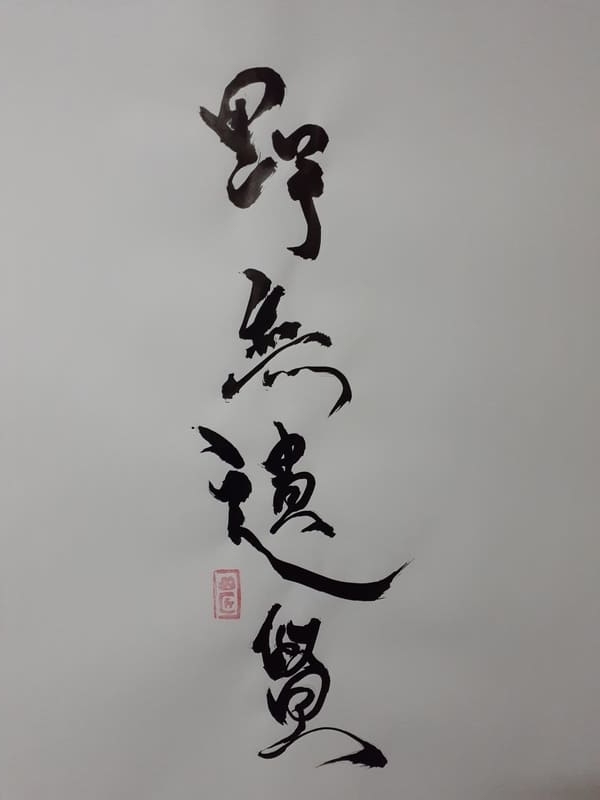 野無遺賢